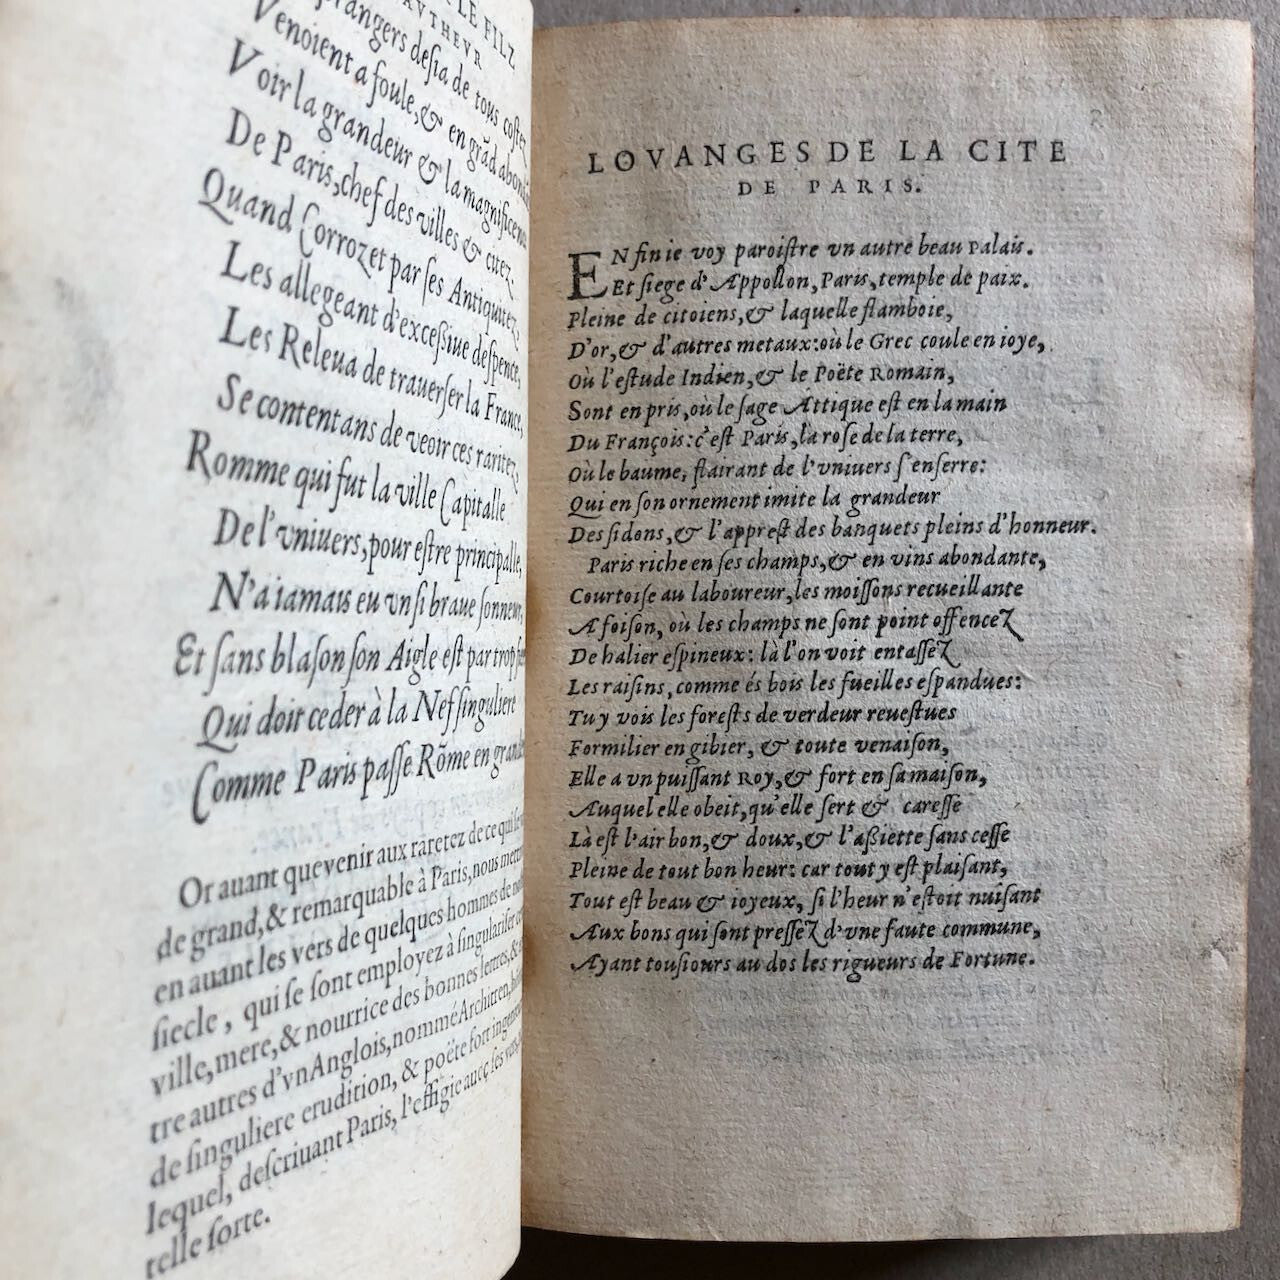 LE FILZ
AVTHEVR
desia de tous costez
Venoient a foule, & en grãd
Voir la grandeur & la magnificence
De Paris, chef des villes & citez
Quand Corrozet par ses Antiquitez,
Les allegeant d'excessiue despence,
Les Releua de trauerser la France,
Se contentans de veoir ces raritez,
Romme qui fut la ville Capitalle
De l'vniuers, pour estre principalle,
N'a iamais eu vn si braue sonneur,
Et sans blason son Aigle est par trop
Qui doit ceder à la Nef singuliere
Comme Paris passe Rõme en
Or auant que venir aux raretez de ce qui
de grand, & remarquable à Paris, nous
en auant les vers de quelques hommes de
siecle, qui se sont employez à singulariser
ville, mere, & nourrice des bonnes lettres, &
tre autres d'vn Anglois, nommé Architren,
de singuliere erudition, & poëte fort
lequel, descriuant Paris, l'effigie auec ses vers,
telle sorte.
LOVANGES DE LA CITE
DE PARIS.
EN fin ie voy paroistre vn autre beau Palais.
Et siege d'Appollon, Paris, temple de paix.
Pleine de citoiens, & laquelle flamboie,
D'or, & d'autres metaux: où le Grec coule en ioye,
Où l'estude Indien, & le Poëte Romain,
Sont en pris, où le sage Attique est en la main
Du François: c'est Paris, la rose de la terre,
Où le baume, flairant de l'vniuers s'enserre:
Qui en son ornement imite la grandeur
Des sidons, & l'apprest des banquets pleins d'honneur.
Paris riche en ses champs, & en vins abondante,
Courtoise au laboureur, les moissons recueillante
A foison, où les champs ne sont point offencez
De halier espineux: là l'on voit entassez
Les raisins, comme és bois les fueilles espandues:
Tu y vois les forests de verdeur reuestues
Formilier en gibier, & toute venaison,
Elle a vn puissant Roy, & fort en sa maison,
Auquel elle obeit, qu'elle sert & caresse
Là est l'air bon, & doux, & l'assiette sans cesse
Pleine de tout bon heur: car tout y est plaisant,
Tout est beau & ioyeux, si l'heur n'estoit nuisant
Aux bons qui sont pressez d'vne faute commune,
Ayant tousiours au dos les rigueurs de Fortune.